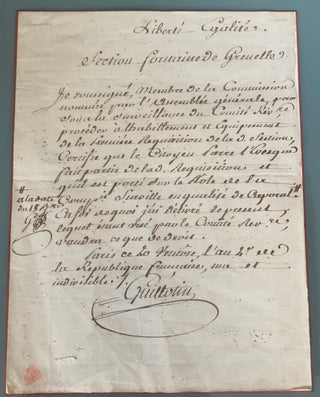 Liberté – Egalité.
Section fontaine de Grenelle
Je soussigné, Membre de la Commission
nommée par l'Assemblée générale, pour
sous la surveillance du Comité Revre
procéder à l'habillement et Equipement
de la première Requisition de la d. Section,
Certifie que le Citoyen Pierre
fait partie de lad. Requisition
qu'il est porté sur le Rôle de la
Compie Surville en qualité de Caporal #
# à la date
du 18
En foi de quoi j'ai délivré le présent
lequel étant visé par le Comité Revre,
vaudra ce que de droit.
Paris ce 20 Ventose, l'an 2e de
la République française, une et
indivisible.
Guillotin